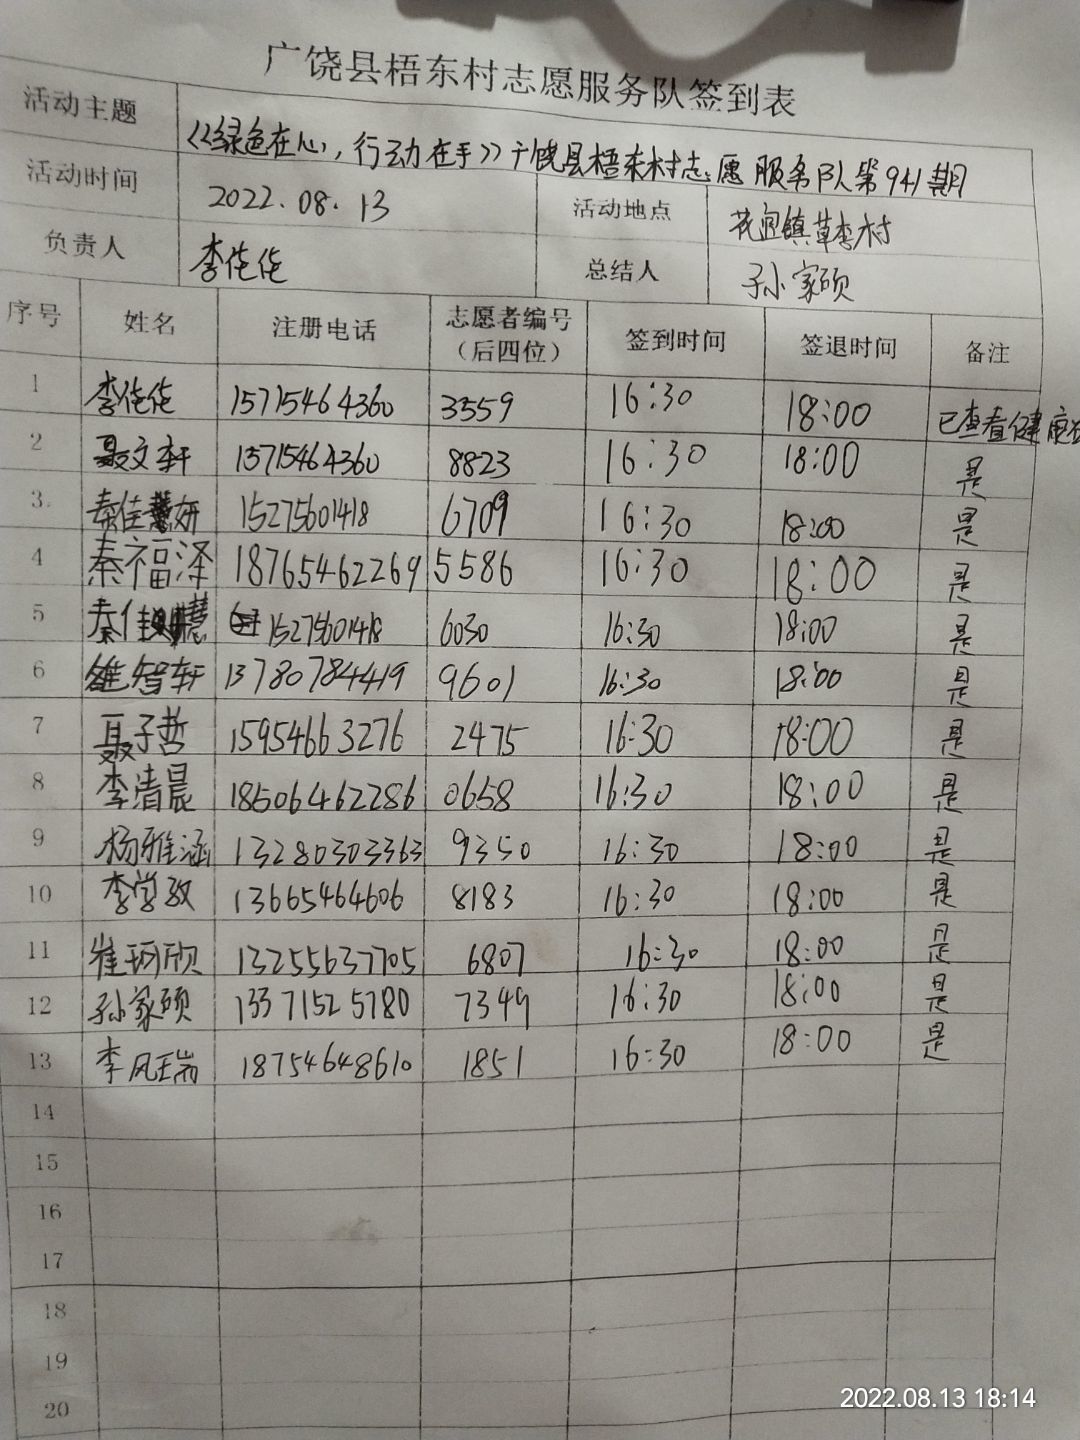 广饶县梧东村志愿服务队签到表
活动主题 《绿色在心，行动在手》广饶县梧东村志愿服务队第941期
活动时间 2022.08.13 活动地点 花园镇草李村
负责人 李佗佗 总结人 孙家硕
序号 姓名 注册电话 志愿者编号（后四位） 签到时间 签退时间 备注
1 李佗佗 15715464360 3559 16:30 18:00 已查看健康
2 聂文轩 15715464360 8823 16:30 18:00 是
3. 秦佳慧妍 15275601418 6709 16:30 18:00 是
4 秦福泽 18765462269 5586 16:30 18:00 是
5 秦佳慧 15275601418 6030 16:30 18:00 是
6 智轩 13780784419 9601 16:30 18:00 是
7 聂子哲 15954663276 2475 16:30 18:00 是
8 李清晨 18506462286 0658 16:30 18:00 是
9 杨雅涵 13280303363 9350 16:30 18:00 是
10 李学政 13665464606 8183 16:30 18:00 是
11 崔珂欣 13255637705 6807 16:30 18:00 是
12 孙家硕 13371525780 7349 16:30 18:00 是
13 李凤瑞 18754648610 1851 16:30 18:00 是
14
15
16
17
18
19
20
2022.08.13 18:14